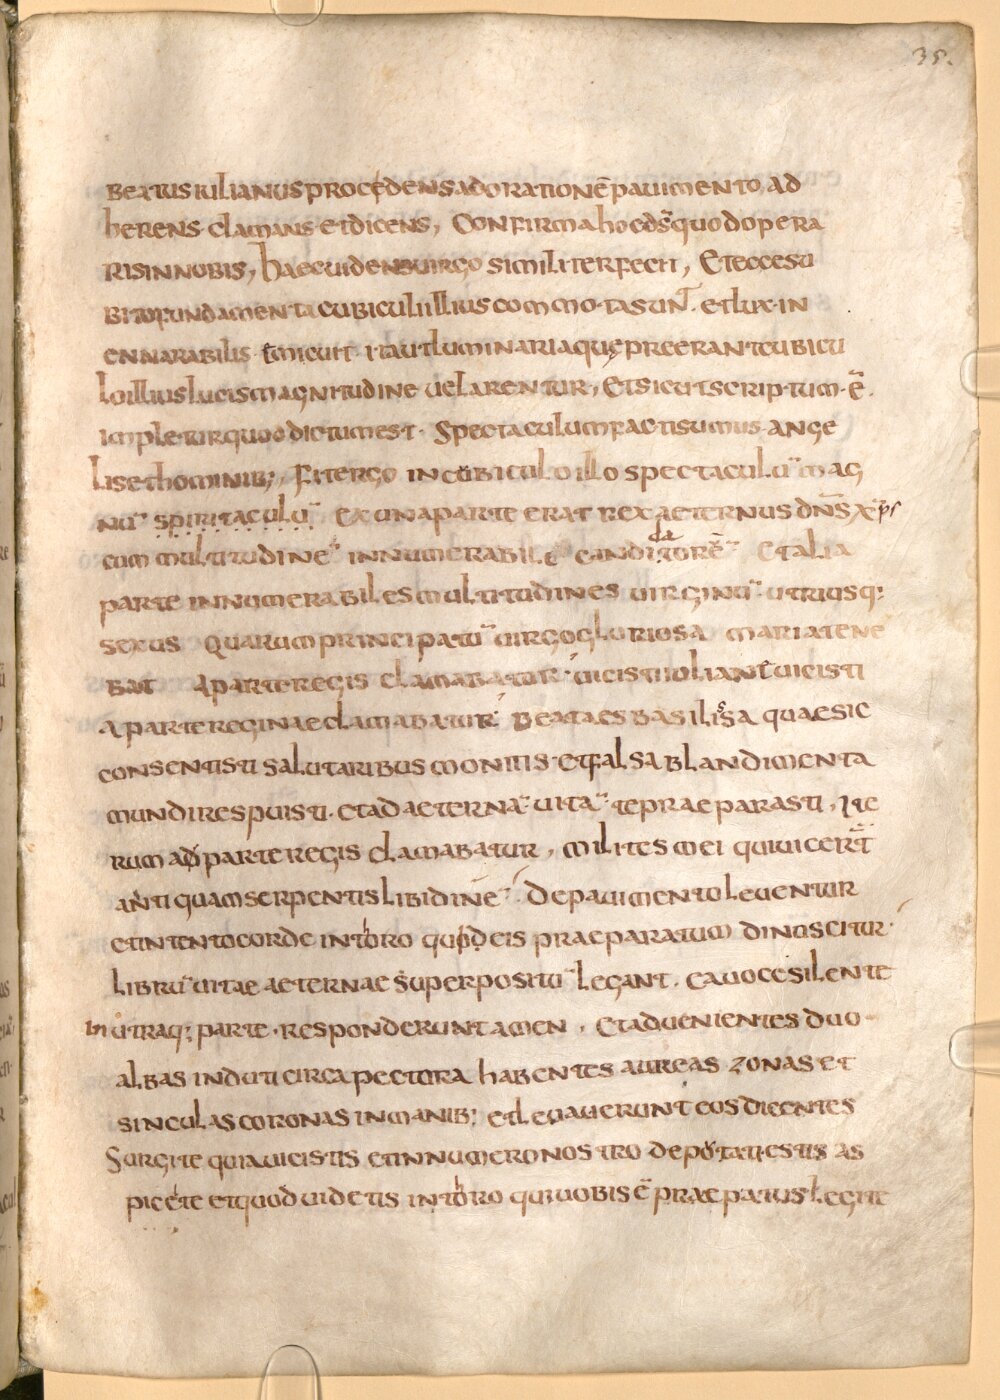 35.
beatus iulianus procedens ad orationē pauimento, ad
herens clamans et dicens, Confirma hoc d̄s quod opera
ris in nobis, haec uidens uirgo similiter fecit, Et ecce su
bito fundamenta cubiculi illius commota sunt. et lux in
ennarabilis emicuit ita ut luminaria quę preerant cubicu
lo illius lucis magnitudine uelarentur, Et sicut scriptum ē.
impletur quod dictum est. Spectaculum facti sumus ange
lis et hominib; Fit ergo in cubiculo illo spectaculū mag
nū spiritaculū ex una parte erat rex aeternus dn̄s xp̄s
cum multitudinē innumerabilē candidatorē Et alia
parte innumerabiles multitudines uirginū utriusq;
sexus quarum principatū uirgo gloriosa maria tene
bat A parte regis clamabatur uicisti iuliane uicisti
a parte reginae clamabatur Beata es basilissa quae sic
consentisti salutaribus monitis et falsa blandimenta
mundi respuisti. et ad aeternā uitā te praeparasti, Ite
rum ad parte regis clamabatur, milites mei qui uicert̄
anti quam serpentis libidinē De pauimento leuentur
et intento corde in toro quod eis praeparatum dinoscitur
librū uitae aeternae superpositū legant. ea uoce silente
In utraq; parte. responderunt amen. Et aduenientes duo
albas induti circa pectora habentes aureas zonas et
sinculas coronas in manib; et leuauerunt eos dicentes
Surgite quia uicistis et in numero nostro deputati estis as
picete et quod uidetis in toro qui uobis ē praeparatus legite